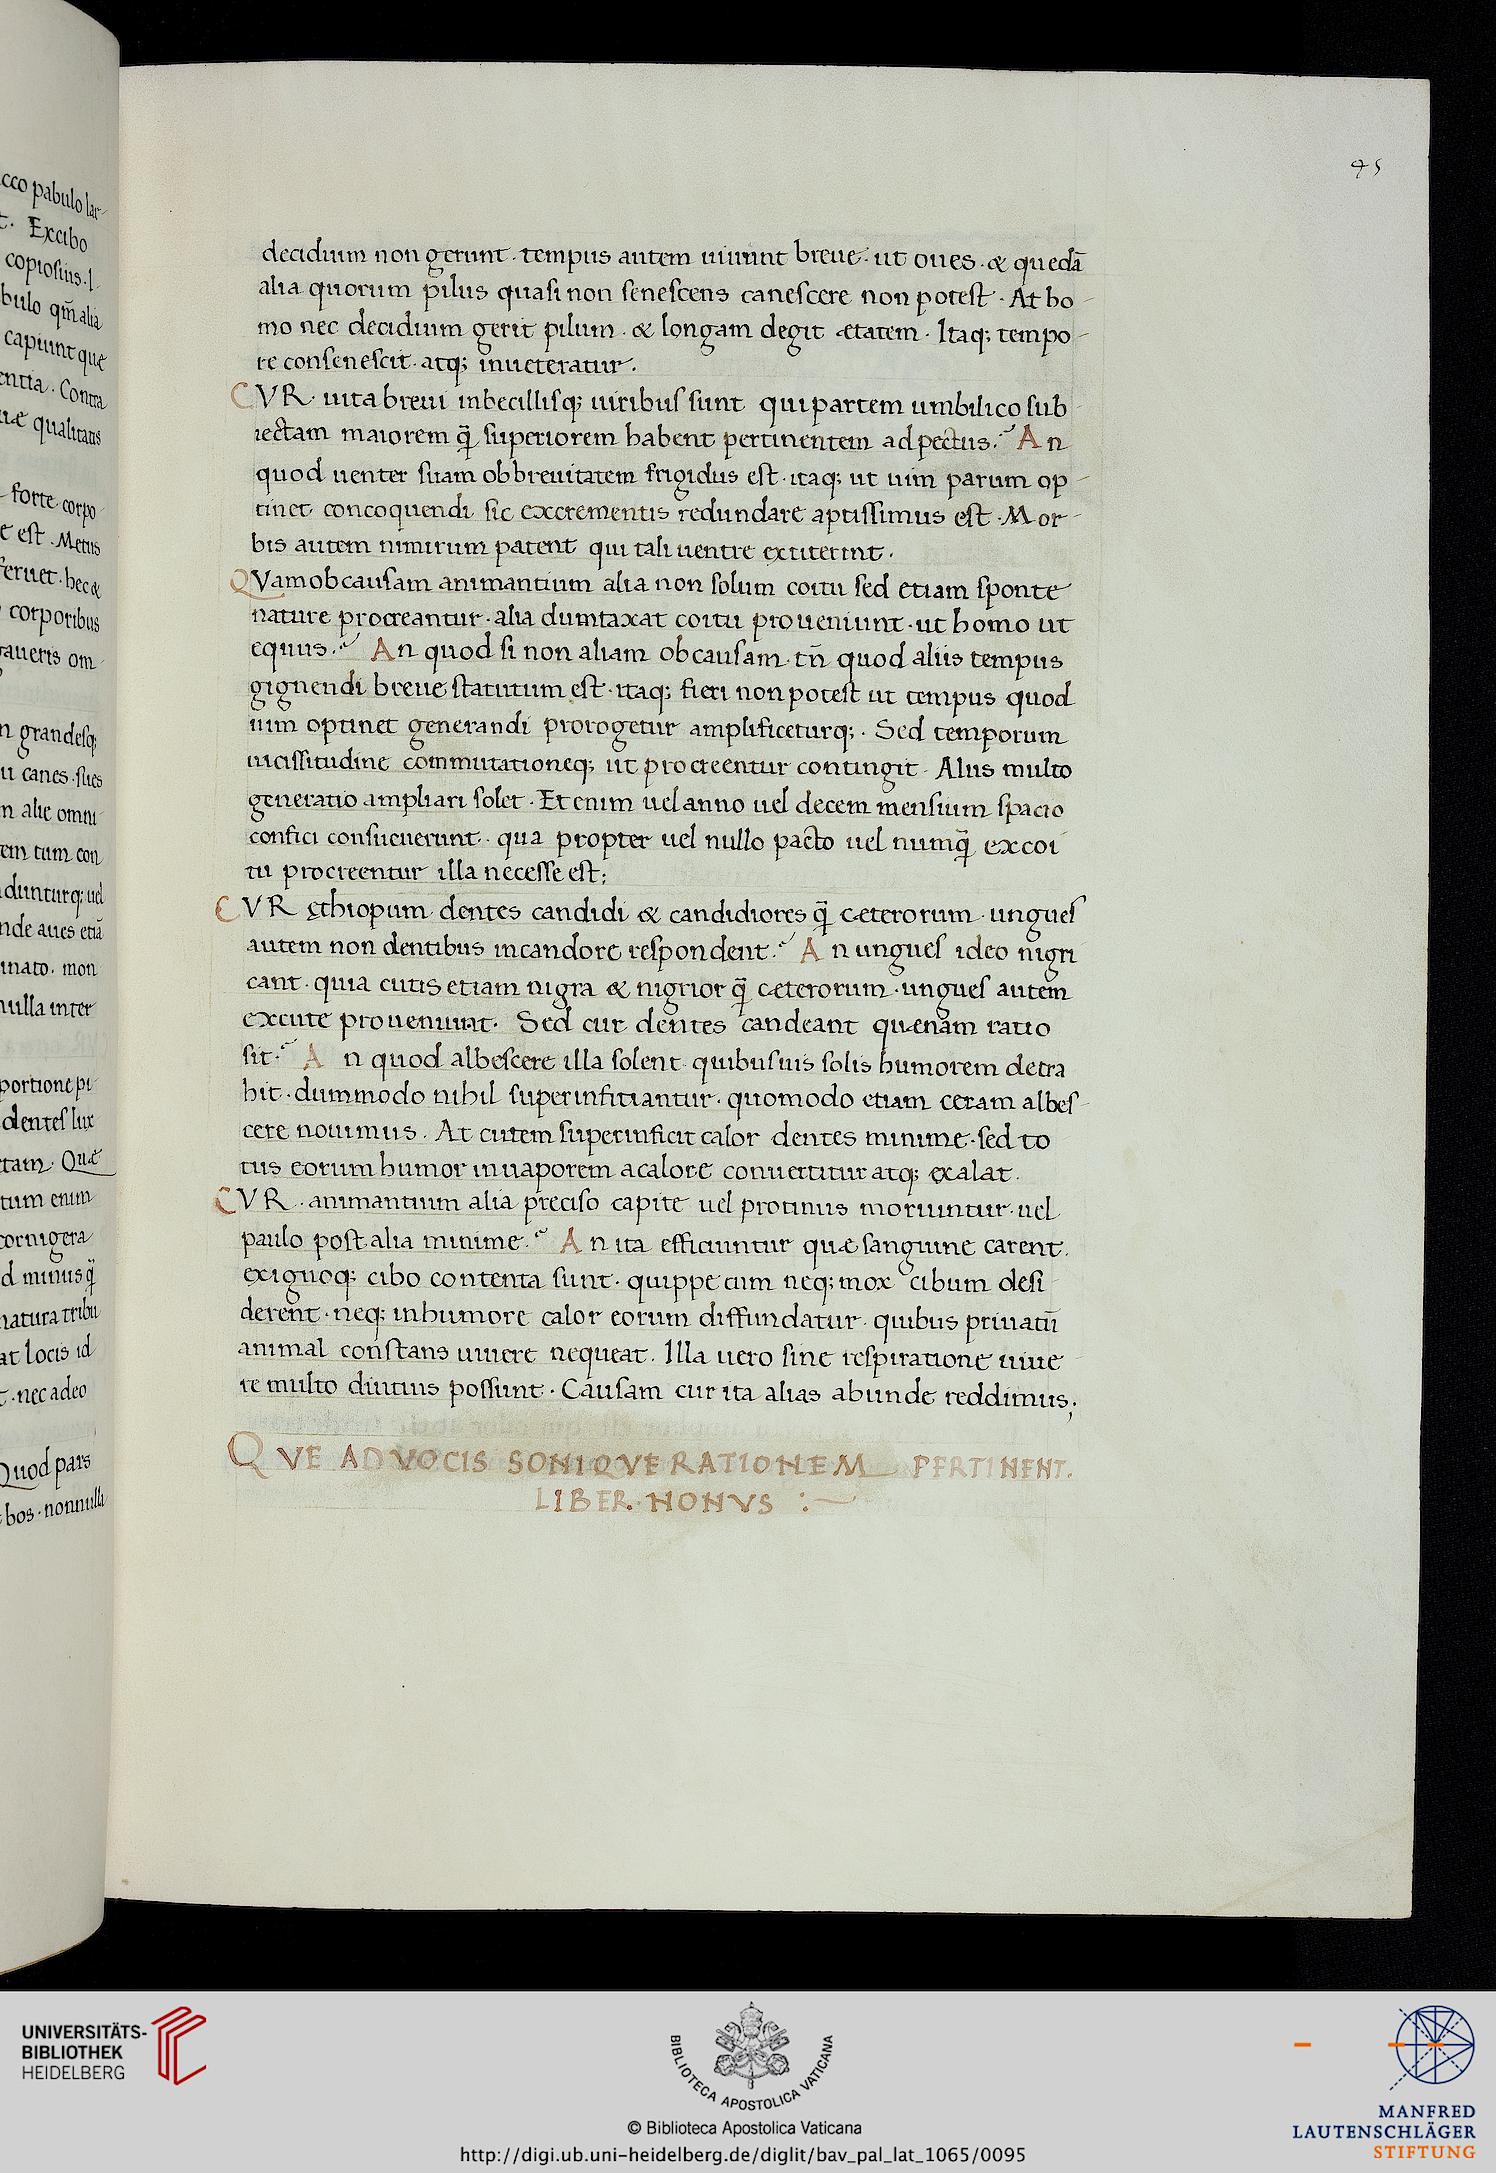 cco pabulo lar-
t. Excibo
copiosius. l.
bulo qm̄ alia
capiunt que
entia. Contra
uæ qualitatis
forte corpo-
e est. Metus
feruet. hec &
corporibus
gaueris om-
n grandesq;
u canes. sues
m alie omni-
em tum con
duntur q; uel
nde aues etiā
inato. mon
nulla inter
portione pi-
dentes lux
tam. Quæ
tum enim
cornigera
d minus q̄
natura tribu
at locis id
t. nec adeo
Quod pars
bos. nonnulla
95
decidium non gerunt. tempus autem uiuunt breue. ut oues. & quedā
alia quorum pilus quasi non senescens canescere non potest. At ho-
mo nec decidium gerit pilum. & longam degit ætatem. Itaq; tempo-
re consenescit. atq; inueteratur.
CVR. uita breui inbecillisq; uiribus sunt qui partem umbilico sub-
iectam maiorem q̄ superiorem habent pertinentem ad pectus? An
quod uenter suam ob breuitatem frigidus est. itaq; ut uim parum op-
tinet concoquendi sic excrementis redundare aptissimus est. Mor-
bis autem nimirum patent qui tali uentre extiterint.
QVam ob causam animantium alia non solum coitu sed etiam sponte
nature procreantur. alia dumtaxat coitu proueniunt. ut homo ut
equus? An quod si non aliam ob causam. tn̄ quod aliis tempus
gignendi breue statutum est. itaq; fieri non potest ut tempus quod
uim optinet generandi prorogetur amplificeturq;. Sed temporum
uicissitudine commutationeq; ut procreentur contingit. Aliis multo
generatio ampliari solet. Et enim uel anno uel decem mensium spacio
confici consueuerunt. qua propter uel nullo pacto uel numq̄ ex coi
tu procreentur illa necesse est;
CVR ęthiopum dentes candidi & candidiores q̄ cæterorum. ungues
autem non dentibus in candore respondent? An ungues ideo nigri
cant. quia cutis etiam nigra & nigrior q̄ cæterorum. ungues autem
ex cute proueniunt. Sed cur dentes candeant quænam ratio
sit? An quod albescere illa solent quibusuis solis humorem detra
hit. dummodo nihil super infitiantur. quomodo etiam ceram albes-
cere nouimus. At cutem super inficit calor dentes minime. sed to
tus eorum humor in uaporem a calore conuertitur atq; exalat.
CVR. animantium alia preciso capite uel protinus moriuntur. uel
paulo post alia minime? An ita efficiuntur quæ sanguine carent.
exiguoq; cibo contenta sunt. quippe cum neq; mox cibum desi-
derent. neq; in humore calor eorum diffundatur. quibus priuatū
animal constans uiuere nequeat. Illa uero sine respiratione uiue-
re multo diutius possunt. Causam cur ita alias abunde reddimus;
QVE AD VOCIS SONIQVE RATIONEM PERTINENT.
LIBER. NONVS :~
UNIVERSITÄTS-
BIBLIOTHEK
HEIDELBERG
BIBLIOTECA APOSTOLICA VATICANA
© Biblioteca Apostolica Vaticana
http://digi.ub.uni-heidelberg.de/diglit/bav_pal_lat_1065/0095
MANFRED
LAUTENSCHLÄGER
STIFTUNG